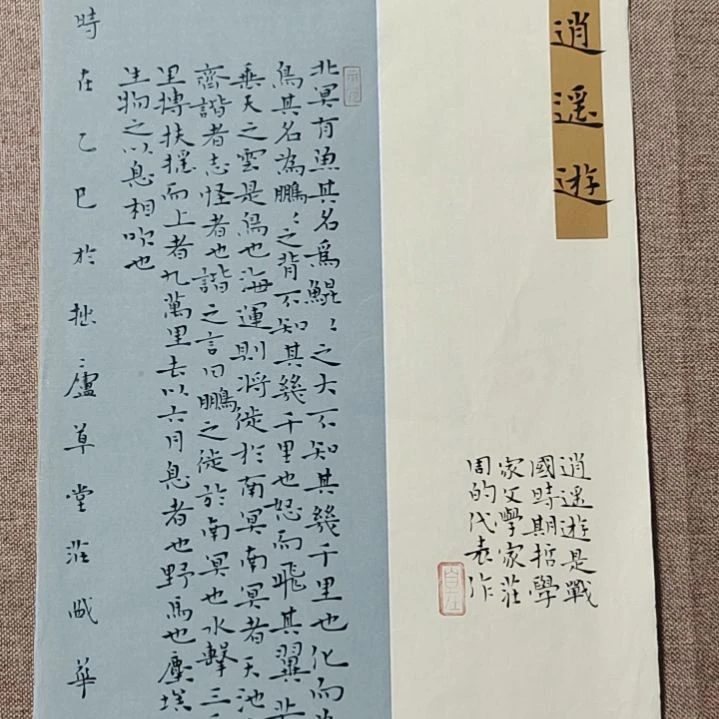 逍遥遊
逍遥遊是戰
國時期哲學
家文學家莊
周的代表作
北冥有漁其名為鯤：之大不知其幾千里也化而為
鳥其名為鵬：之背不知其幾千里也怒而飛其翼
垂天之雲是鳥也海運則將徙於南冥南冥者天池
齊諧者志怪者也諧之言曰鵬之徙於南冥也水擊三
里摶扶摇而上者九萬里去以六月息者也野馬也塵埃
生物之以息相吹也
時在乙巳於拙廬草堂莊
華